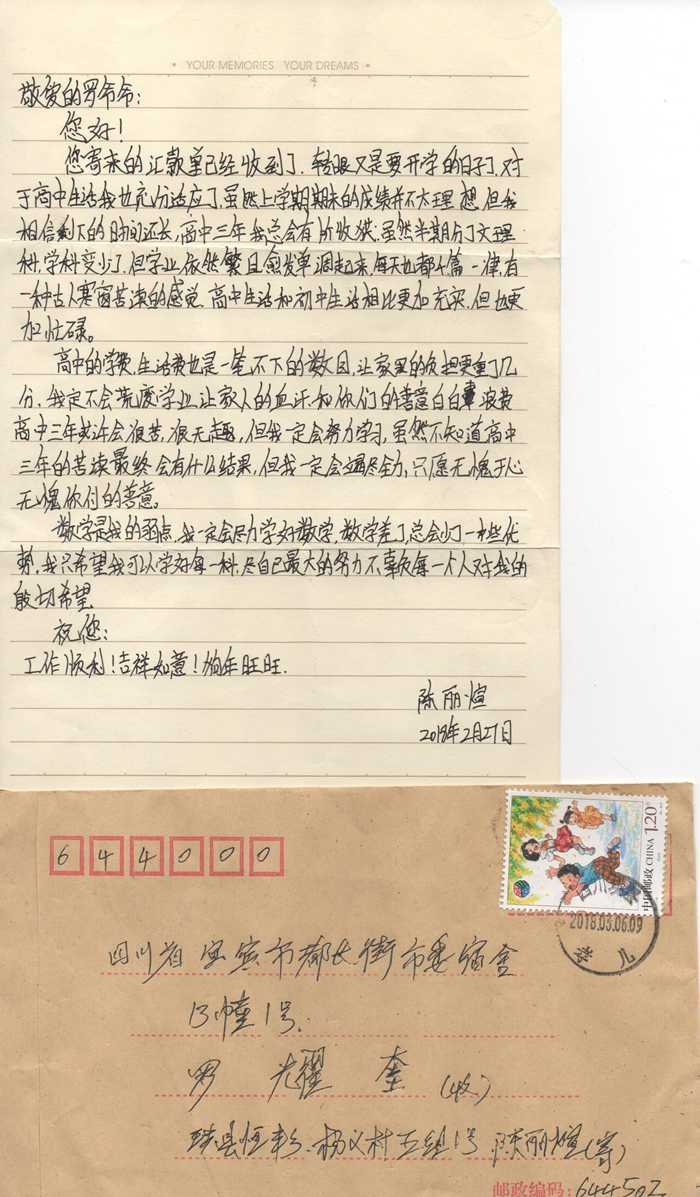 • YOUR MEMORIES YOUR DREAMS •
敬爱的罗爷爷:
您好!
您寄来的汇款单已经收到了,转眼又是要开学的日子了,对
于高中生活我也充份适应了,虽然上学期期末的成绩并不太理想,但我
相信剩下的时间还长,高中三年我总会有所收获.虽然半期分了文理
科,学科变少了,但学业依然繁且愈发单调起来,每天也都千篇一律,有
一种古人寒窗苦读的感觉.高中生活和初中生活相比更加充实,但也更
加忙碌。
高中的学费,生活费也是一笔不下的数目,让家里的负担更重了几
分、我定不会荒废学业,让家人的血汗和你们的善意白白浪费
高中三年或许会很苦,很无趣,但我一定会努力学习,虽然不知道高中
三年的苦读最终会有什么结果,但我一定会竭尽全力,只愿无愧于心
无愧你付的善意。
数学是我的弱点,我一定会尽力学好数学,数学差了,总会少了一些优
势,我只希望我可以学好每一科,尽自己最大的努力不辜负每一个人对我的
殷切希望.
祝您:
工作顺利!吉祥如意!狗年旺旺.
陈丽煊
2018年2月27日
644000
1.20
中国邮政 CHINA
四川
2018.03.06.09
四川省宜宾市都长街市委宿舍
13幢1号.
罗光耀奎(收)
珙县恒丰乡杨义村五组1号 陈丽煊(寄)
邮政编码:644502